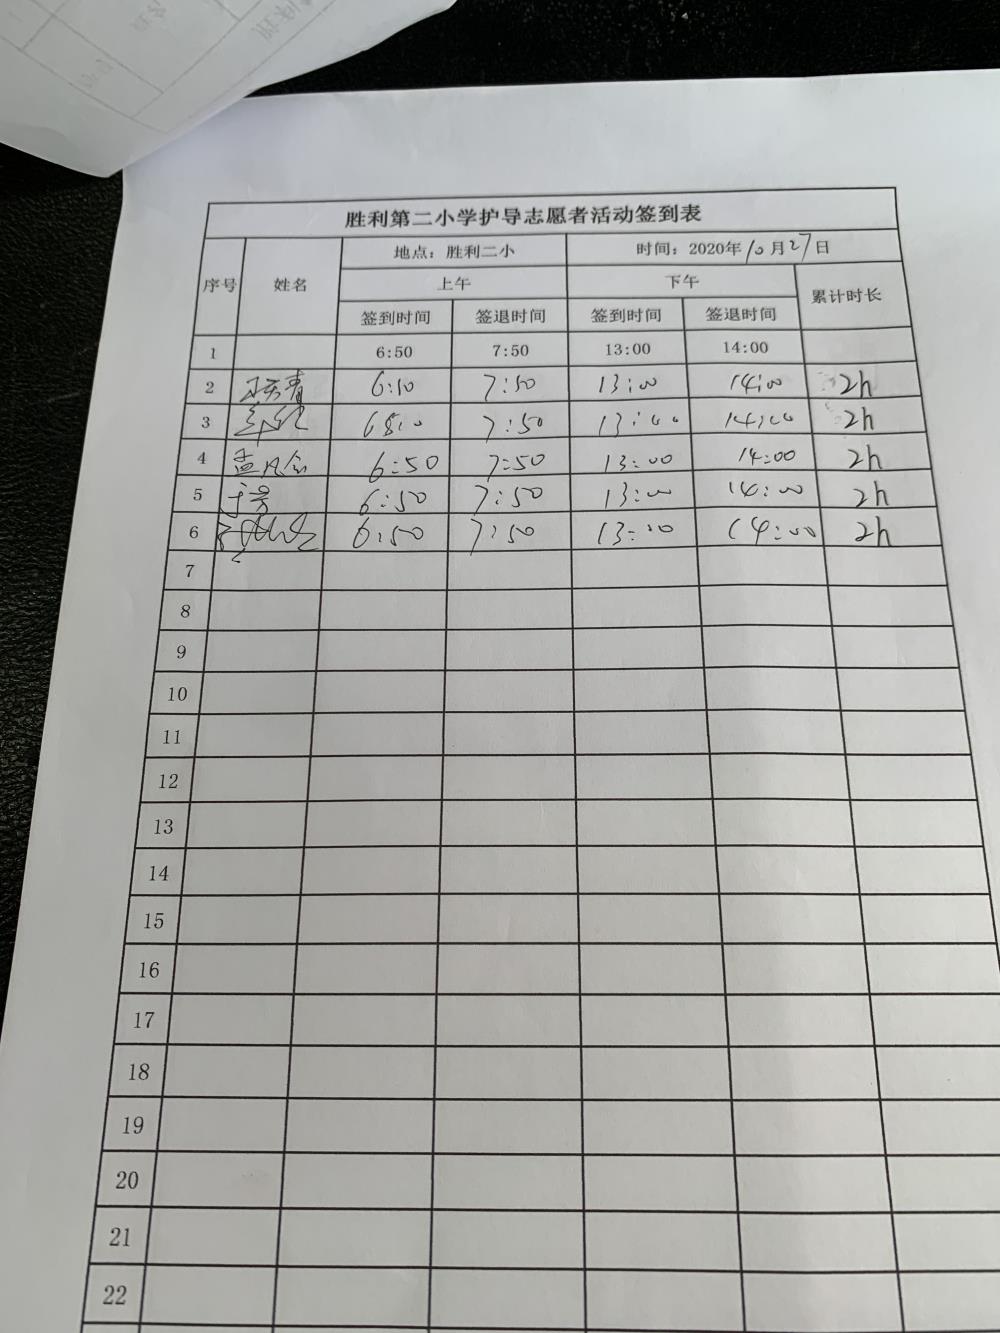 胜利第二小学护导志愿者活动签到表
序号 姓名 地点：胜利二小 时间：2020年10月27日
上午 下午 累计时长
签到时间 签退时间 签到时间 签退时间
1 6:50 7:50 13:00 14:00
2 6:50 7:50 13:00 14:00 2h
3 7:50 13:00 14:00 2h
4 6:50 7:50 13:00 14:00 2h
5 6:50 7:50 13:00 14:00 2h
6 6:50 7:50 13:00 14:00 2h
7
8
9
10
11
12
13
14
15
16
17
18
19
20
21
22